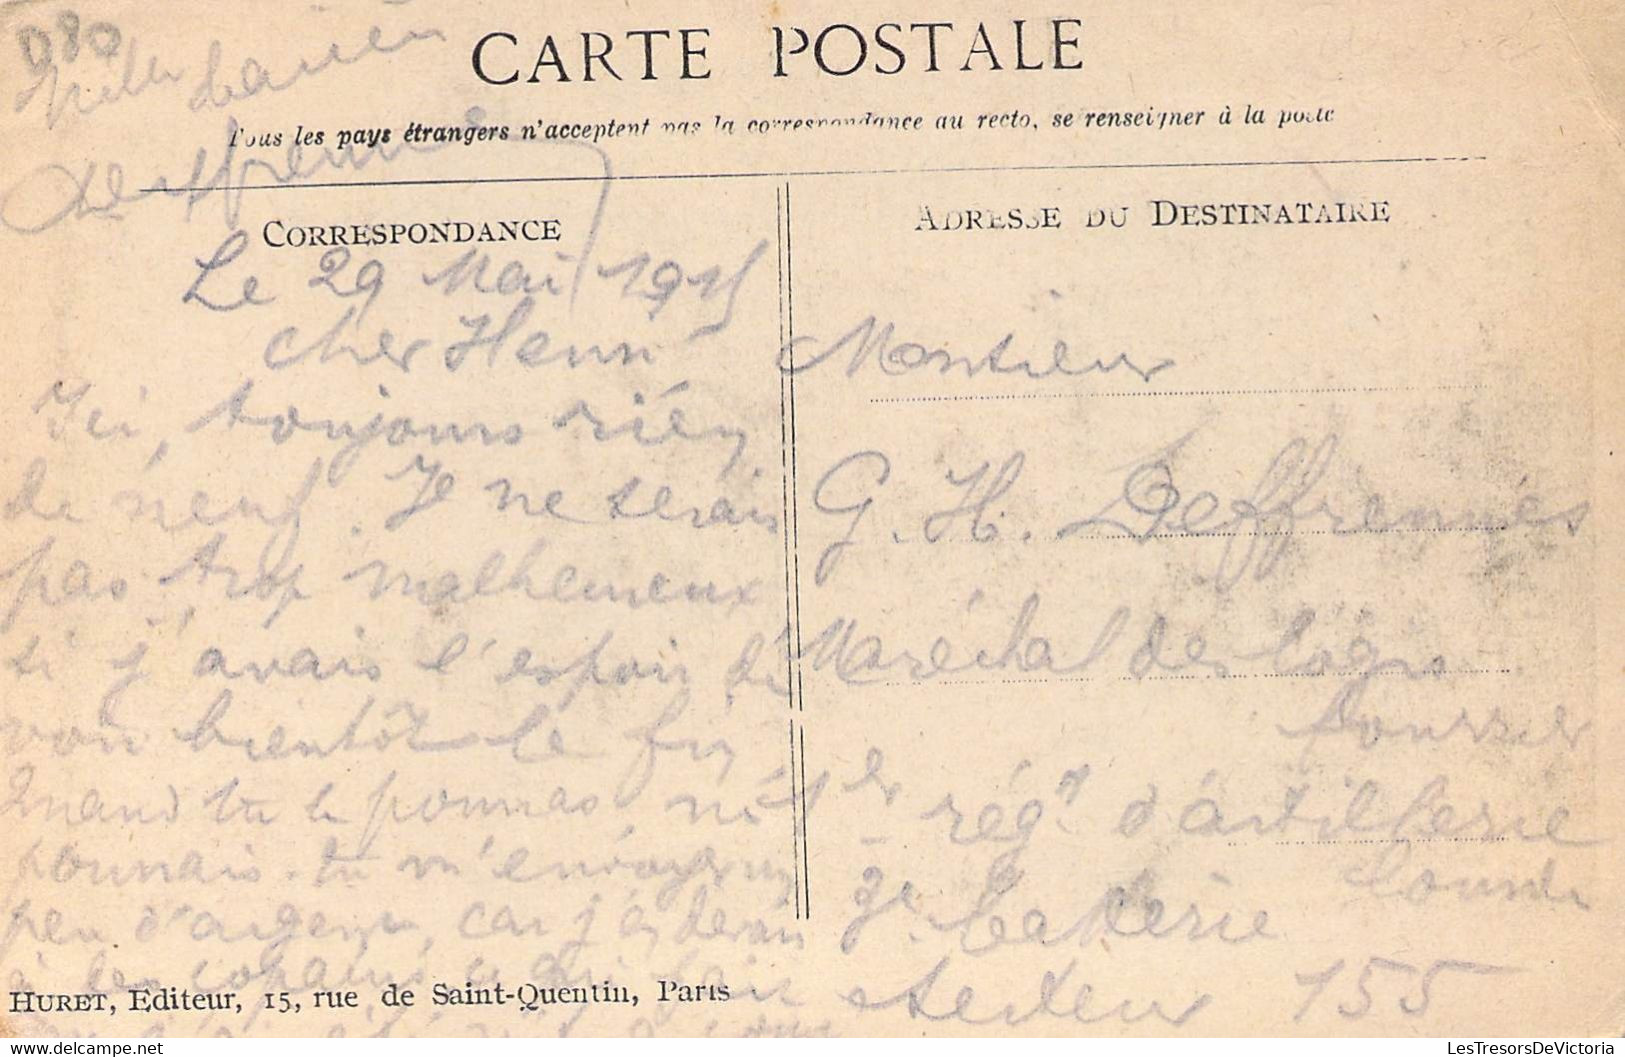 080
CARTE POSTALE
Tous les pays étrangers n'acceptent pas la correspondance au recto, se renseigner à la poste
CORRESPONDANCE
Le 29 Mai 1915
cher Henri
Ici, toujours rien
de neuf. Je ne serais
pas trop malheureux
si j'avais l'espoir de
voir bientôt la fin
Quand tu le pourras,
pourrais-tu m'envoyer un
peu d'argent, car j'en devrais
à les copains
HURET, Editeur, 15, rue de Saint-Quentin, Paris
ADRESSE DU DESTINATAIRE
Monsieur
G. H. Deffrennes
Maréchal des logis
fourrier
1er régt d'artillerie
lourde
3e batterie
secteur 155
LesTresorsDeVictoria